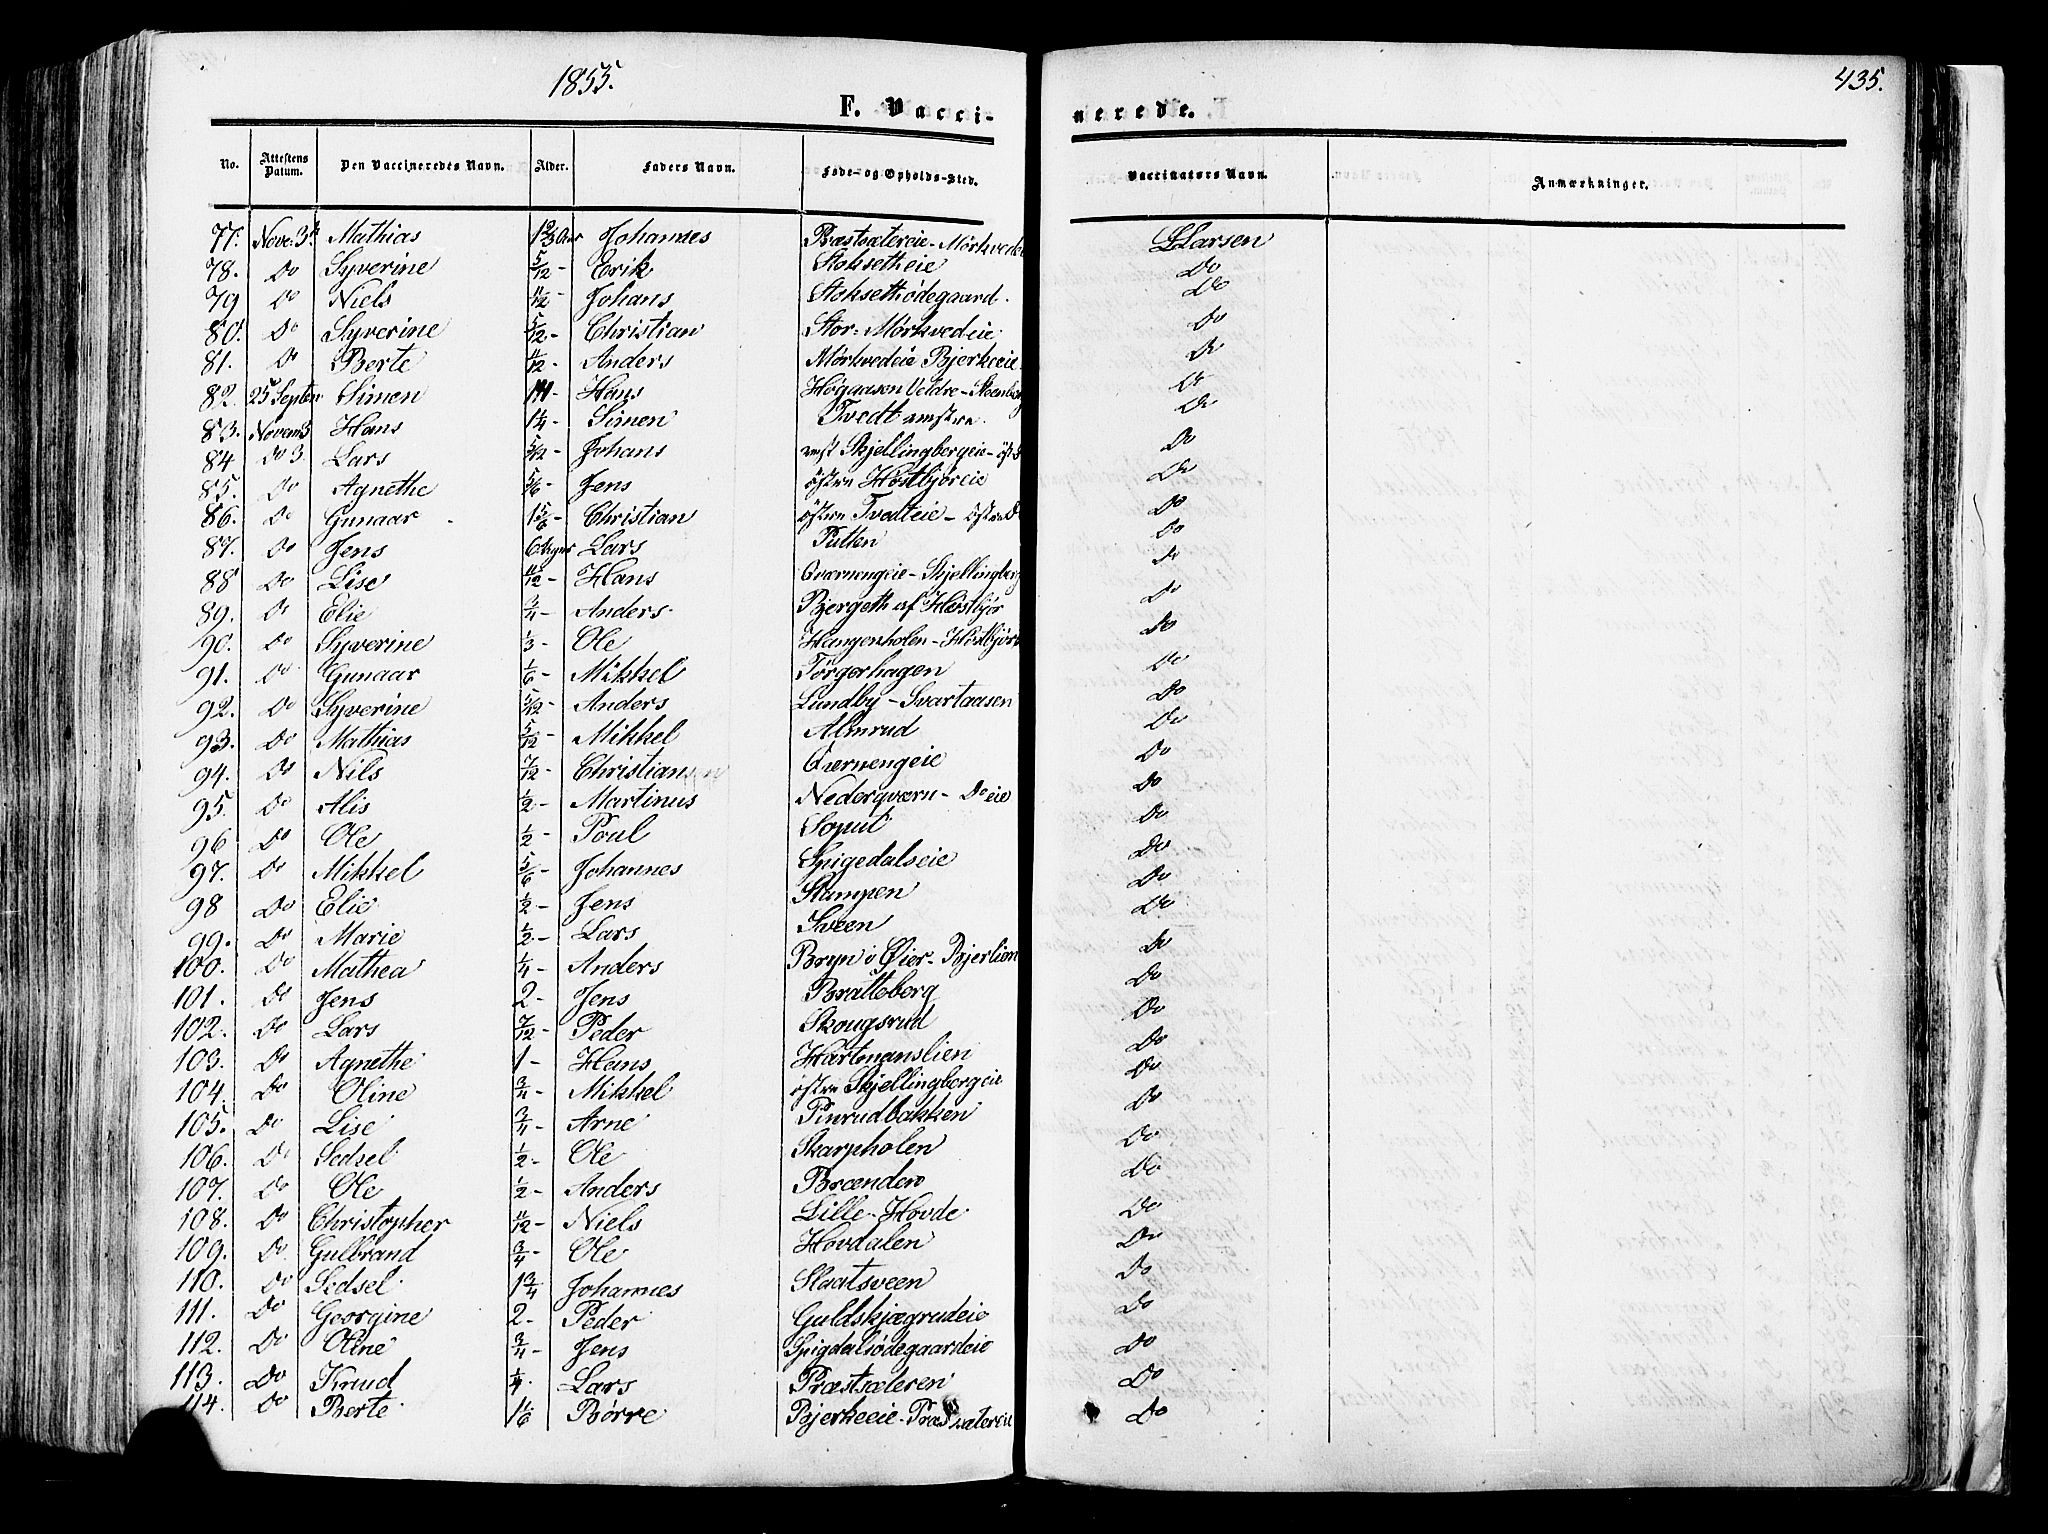 1855.
435.
F. Vacci-
nerede.
No. Attestens Datum. Den Vaccineredes Navn. Alder. Faders Navn. Føde- og Opholds-Sted. Vaccinators Navn. Anmærkninger.
77. Nove. 3. Mathias 1 2/3 Aar Johannes Præstsætereie - Mørkvedei LLarsen
78. Do Syverine 5/12 - Erik Stoksetheie Do
79 Do Niels 11/12 - Johans Stoksethødegaard. Do
80. Do Syverine 5/12 - Christian Stor-Mørkvedeie Do
81. Do Berte 11/12 - Anders Mørkvedeie Bjerkeeie Do
82. 25 Septem Simen - Hans Høgaasen Veldre - Steenberg Do
83. Novem 3 Hans 1 1/4 - Simen Tvedt vestre. Do
84 Do 3. Lars 5/12 - Johans vest Skjellingbergeie - öst Do
85. Do Agnethe 5/6 - Jens östre Höstbjöreie Do
86. Do Gunaar 1 5/6 - Christian östre Tvedteie - östre D Do
87. Do Jens 6 Uger Lars Putten Do
88 Do Lise 11/12 - Hans Qværnengeie - Skjellingberg Do
89. Do Elie 3/4 - Anders Bjergeth af Höstbjör Do
90. Do Syverine 1/3 - Ole Haugenholen - Höstbjör Do
91. Do Gunaar 1/6 - Mikkel Törgerhagen Do
92. Do Syverine 5/12 - Anders Lundby - Svartaasen Do
93. Do Mathias 5/12 - Mikkel Almrud Do
94. Do Nils 7/12 - Christiansen Qværnengeie Do
95. Do Alis 1/2 - Martinus Nederqværn - Do eie Do
96 Do Ole 1/2 - Poul Sopul Do
97. Do Mikkel 5/6 - Johannes Spigedalseie Do
98 Do Elie 1/2 - Jens Stampen Do
99. Do Marie 1/2 - Lars Sveen Do
100. Do Mathea 1/4 - Anders Bryn i Øier - Bjerlien Do
101. Do Jens 2 - Jens Bratteberg Do
102. Do Lars 7/12 - Peder Skougsrud Do
103. Do Agnethe 1 - Hans Hartmanslien Do
104. Do Oline 3/4 - Mikkel östre Skjellingbergeie Do
105. Do Lise 3/4 - Arne Pinrudbakken Do
106. Do Sedsel 1/2 - Ole Skarpholen Do
107. Do Ole 1/2 - Anders Brænden Do
108. Do Christopher 11/12 - Niels Lille-Hovde Do
109. Do Gulbrand 3/4 - Ole Hovdalen Do
110. Do Sedsel 1 3/4 Johannes Slaatsveen Do
111. Do Georgine 2 - Peder Guldskjægrudeie Do
112. Do Oline 3/4 - Jens Spigdalsødegaardeie Do
113. Do Knud 1/4 - Lars Præstsæteren Do
114. Do Berte 1 1/6 Börre Bjerkeeie - Præstsætereie Do